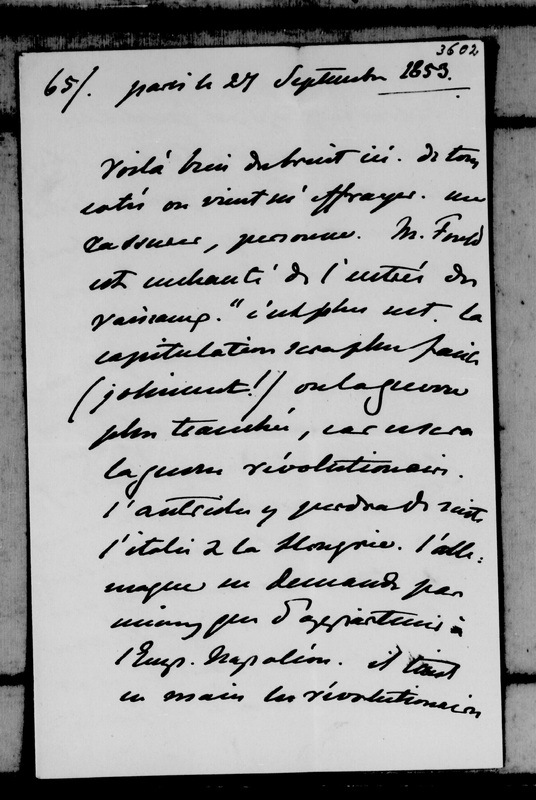 3602
65/. paris le 27 Septembre 1853.
Voilà bien du bruit ici. de tous
cotés on vient m'effrayer. me
rassurer, personne. M. Fould
est enchanté de l'entrée des
vaisseaux. "c'est plus net. la
capitulation sera plus facile
(joliment!) ou la guerre
plus tranchée, car ce sera
la guerre révolutionaire.
l'autriche y perdra de suite
l'italie & la Hongrie. l'alle=
magne ne demande pas
mieux que d'appartenir à
l'Emp. Napoléon. il tient
en main les révolutionaires